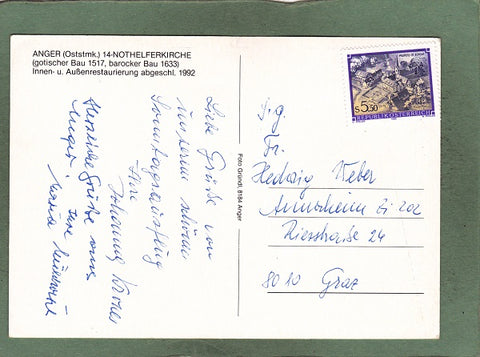 ANGER (Oststmk.) 14-NOTHELFERKIRCHE
(gotischer Bau 1517, barocker Bau 1633)
Innen- u. Außenrestaurierung abgeschl. 1992
Liebe Grüße von
unserem schönen
Sonntagsausflug
Ihre
Johanna
Herzliche Grüße aus
Anger Ihre
Maria
Foto Gründl, 8184 Anger
S 5.50
REPUBLIK ÖSTERREICH
Fr.
Hedwig Weber
Zi 202
Riesstraße 24
8010 Graz